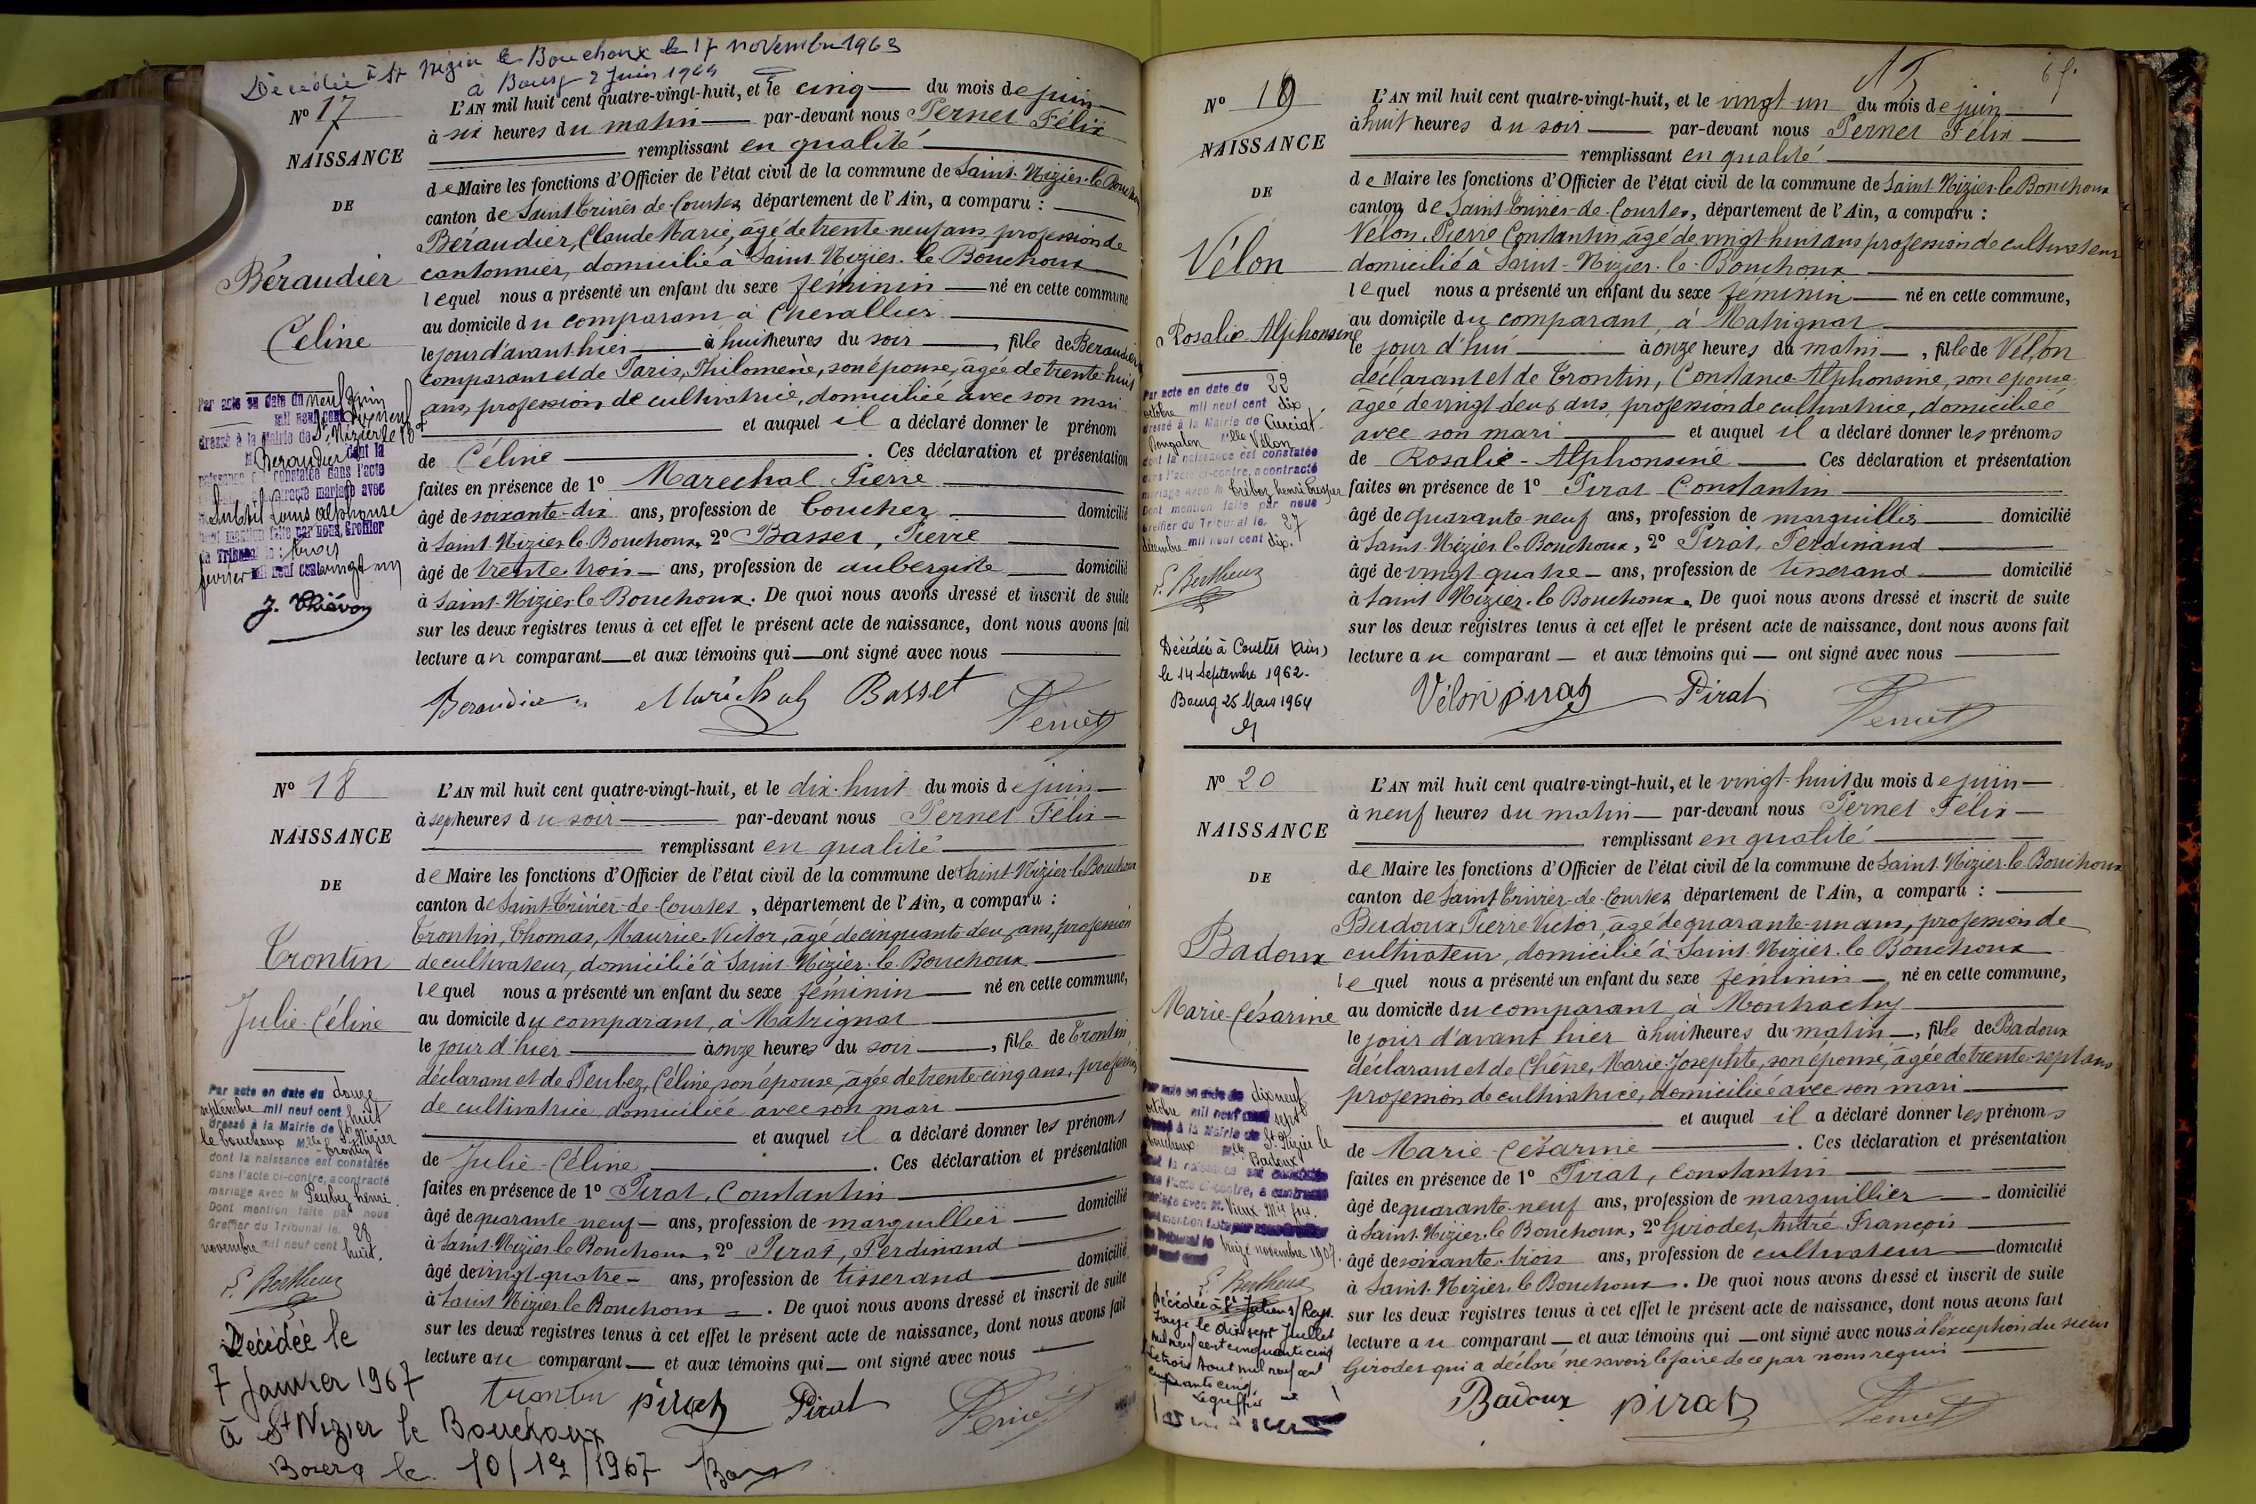 Décédée à St Nizier le Bouchoux le 17 novembre 1963
à Bourg 2 Juin 1964
N° 17
NAISSANCE
DE
Béraudier
Céline
Par acte en date du neuf juin
mil neuf cent dix neuf
dressé à la Mairie de St Nizier le Bt
Béraudier dont la
naissance est constatée dans l'acte
contracté mariage avec
Subtil Louis Alphonse
Dont mention faite par nous, Greffier
du Tribunal le trois
février mil neuf cent vingt un
J. Thiévon
L'AN mil huit cent quatre-vingt-huit, et le cinq du mois de juin
à six heures du matin par-devant nous Pernet Félix
remplissant en qualité
de Maire les fonctions d'Officier de l'état civil de la commune de Saint-Nizier-le-Bouchoux
canton de Saint Trivier de Courtes, département de l'Ain, a comparu :
Béraudier, Claude Marie, âgé de trente neuf ans, profession de
cantonnier, domicilié à Saint-Nizier-le-Bouchoux
lequel nous a présenté un enfant du sexe féminin né en cette commune
au domicile du comparant à Chevallier
le jour d'avant hier à huit heures du soir, fille de Beraudier
comparant et de Paris, Philomène, son épouse, âgée de trente-huit
ans, profession de cultivatrice, domiciliée avec son mari
et auquel il a déclaré donner le prénom
de Céline. Ces déclaration et présentation
faites en présence de 1° Marechal Pierre
âgé de soixante-dix ans, profession de boucher domicilié
à Saint-Nizier-le-Bouchoux, 2° Basset, Pierre
âgé de trente trois ans, profession de aubergiste domicilié
à Saint-Nizier-le-Bouchoux. De quoi nous avons dressé et inscrit de suite
sur les deux registres tenus à cet effet le présent acte de naissance, dont nous avons fait
lecture au comparant et aux témoins qui ont signé avec nous
Beraudier Maréchal Basset Pernet
N° 18
NAISSANCE
DE
Trontin
Julie-Céline
Par acte en date du douze
septembre mil neuf cent huit
dressé à la Mairie de St Nizier
le bouchoux Mlle Trontin
dont la naissance est constatée
dans l'acte ci-contre, a contracté
mariage avec M Peubey henri.
Dont mention faite par nous
Greffier du Tribunal le 28
novembre mil neuf cent huit.
E. Bertheux
Décédée le
7 Janvier 1967
à St Nizier le Bouchoux
Bourg le 10/12/1967
L'AN mil huit cent quatre-vingt-huit, et le dix-huit du mois de juin
à sept heures du soir par-devant nous Pernet Félix
remplissant en qualité
de Maire les fonctions d'Officier de l'état civil de la commune de Saint-Nizier-le-Bouchoux
canton de Saint-Trivier-de-Courtes, département de l'Ain, a comparu :
Trontin, Thomas, Maurice, Victor, âgé de cinquante deux ans, profession
de cultivateur, domicilié à Saint-Nizier-le-Bouchoux
lequel nous a présenté un enfant du sexe féminin né en cette commune,
au domicile du comparant, à Matrignat
le jour d'hier à onze heures du soir, fille de Trontin
déclarant et de Peubez, Céline, son épouse, âgée de trente-cinq ans, profession
de cultivatrice domiciliée avec son mari
et auquel il a déclaré donner les prénoms
de Julie-Céline. Ces déclaration et présentation
faites en présence de 1° Pirat, Constantin
âgé de quarante neuf ans, profession de marguillier domicilié
à Saint-Nizier-le-Bouchoux, 2° Pirat, Ferdinand
âgé de vingt-quatre ans, profession de tisserand domicilié
à Saint Nizier le Bouchoux. De quoi nous avons dressé et inscrit de suite
sur les deux registres tenus à cet effet le présent acte de naissance, dont nous avons fait
lecture au comparant et aux témoins qui ont signé avec nous
Trontin pirat Pirat Pernet
N° 19
NAISSANCE
DE
Vélon
Rosalie Alphonsine
Par acte en date du 22
octobre mil neuf cent dix
dressé à la Mairie de Curciat-
Dongalon Mlle Vélon
dont la naissance est constatée
dans l'acte ci-contre, a contracté
mariage avec M Tréboz henri Prosper
Dont mention faite par nous
Greffier du Tribunal le 27
décembre mil neuf cent dix.
E. Bertheux
Décédée à Courtes (Ain)
le 14 Septembre 1962.
Bourg 25 Mars 1964
L'AN mil huit cent quatre-vingt-huit, et le vingt un du mois de juin
à huit heures du soir par-devant nous Pernet Félix
remplissant en qualité
de Maire les fonctions d'Officier de l'état civil de la commune de Saint-Nizier-le-Bouchoux
canton de Saint Trivier-de-Courtes, département de l'Ain, a comparu :
Vélon, Pierre Constantin, âgé de vingt-huit ans profession de cultivateur
domicilié à Saint-Nizier-le-Bouchoux
lequel nous a présenté un enfant du sexe féminin né en cette commune,
au domicile du comparant, à Matrignat
le jour d'hui à onze heures du matin, fille de Vélon
déclarant et de Trontin, Constance Alphonsine, son épouse
âgée de vingt deux ans, profession de cultivatrice, domiciliée
avec son mari et auquel il a déclaré donner les prénoms
de Rosalie-Alphonsine Ces déclaration et présentation
faites en présence de 1° Pirat Constantin
âgé de quarante neuf ans, profession de marguillier domicilié
à Saint-Nizier-le-Bouchoux, 2° Pirat, Ferdinand
âgé de vingt quatre ans, profession de tisserand domicilié
à Saint Nizier-le-Bouchoux. De quoi nous avons dressé et inscrit de suite
sur les deux registres tenus à cet effet le présent acte de naissance, dont nous avons fait
lecture au comparant et aux témoins qui ont signé avec nous
Vélon pirat Pirat Pernet
N° 20
NAISSANCE
DE
Badoux
Marie-Césarine
Par acte en date du dix neuf
octobre mil neuf cent sept
dressé à la Mairie de St Nizier le
Bouchoux Mlle Badoux
dont la naissance est constatée
dans l'acte ci-contre, a contracté
mariage avec M. Vieux
treize novembre 1907.
E. Bertheux
Décédée à St Julien s/Reyss.
le dix sept Juillet
mil neuf cent cinquante cinq
Le trois Aout mil neuf cent
cinquante cinq.
Le greffier
L'AN mil huit cent quatre-vingt-huit, et le vingt-huit du mois de juin
à neuf heures du matin par-devant nous Pernet Félix
remplissant en qualité
de Maire les fonctions d'Officier de l'état civil de la commune de Saint-Nizier-le-Bouchoux
canton de Saint Trivier-de-Courtes département de l'Ain, a comparu :
Badoux Pierre Victor, âgé de quarante-un ans, profession de
cultivateur, domicilié à Saint-Nizier-le-Bouchoux
lequel nous a présenté un enfant du sexe féminin né en cette commune,
au domicile du comparant, à Montrachy
le jour d'avant hier à huit heures du matin, fille de Badoux
déclarant et de Chêne, Marie-Josephte, son épouse, âgée de trente-sept ans
profession de cultivatrice, domiciliée avec son mari
et auquel il a déclaré donner les prénoms
de Marie-Césarine. Ces déclaration et présentation
faites en présence de 1° Pirat, Constantin
âgé de quarante-neuf ans, profession de marguillier domicilié
à Saint-Nizier-le-Bouchoux, 2° Girodet, André François
âgé de soixante-trois ans, profession de cultivateur domicilié
à Saint-Nizier-le-Bouchoux. De quoi nous avons dressé et inscrit de suite
sur les deux registres tenus à cet effet le présent acte de naissance, dont nous avons fait
lecture au comparant et aux témoins qui ont signé avec nous à l'exception du sieur
Girodet qui a déclaré ne savoir le faire de ce par nous requis
Badoux pirat Pernet